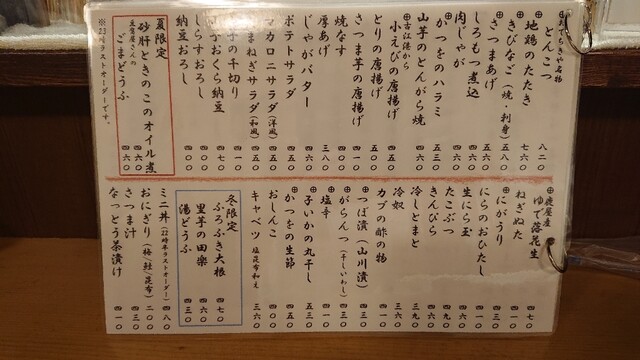 とんこつ 八二〇
⊕地鶏のたたき 七六〇
⊕きびなご（焼・刺身） 五八〇
⊕さつまあげ 五六〇
しろもつ煮込 四六〇
肉じゃが 四六〇
⊕かつをのハラミ 五三〇
山芋のとんがら焼 四六〇
⊕古江港から
小えびの唐揚げ 五〇〇
とりの唐揚げ 五〇〇
さつま芋の唐揚げ 四一〇
焼なす 四〇〇
厚あげ 三八〇
じゃがバター 四六〇
ポテトサラダ 四五〇
マカロニサラダ（洋風） 四五〇
たまねぎサラダ（和風） 四五〇
千切り 四一〇
おくら納豆 四七〇
しらすおろし 四〇〇
納豆おろし 四〇〇
夏限定
砂肝ときのこのオイル煮 四六〇
豆富屋さんの
ごまどうふ 四六〇
※22時半ラストオーダーです。
⊕鹿屋産
ゆで落花生 四七〇
ねぎぬた 四一〇
⊕にがうり 四三〇
にらのおひたし 四一〇
生にら玉 四六〇
たこぶつ 四六〇
きんぴら 四一〇
冷しとまと 三九〇
冷奴 三六〇
カブの酢の物 四一〇
⊕つぼ漬（山川漬） 四三〇
⊕がらんつ（干しいわし） 四三〇
⊕塩辛 四一〇
⊕子いかの丸干し 五三〇
⊕かつをの生節 五三〇
おしんこ 四〇〇
キャベツ 塩昆布和え 三六〇
冬限定
ふろふき大根 四七〇
里芋の田楽 四六〇
湯どうふ 四三〇
ミニ丼（22時半ラストオーダー） 四八〇
おにぎり（梅/鮭/昆布） 二〇〇
さつま汁 四三〇
なっとう茶漬け 四一〇